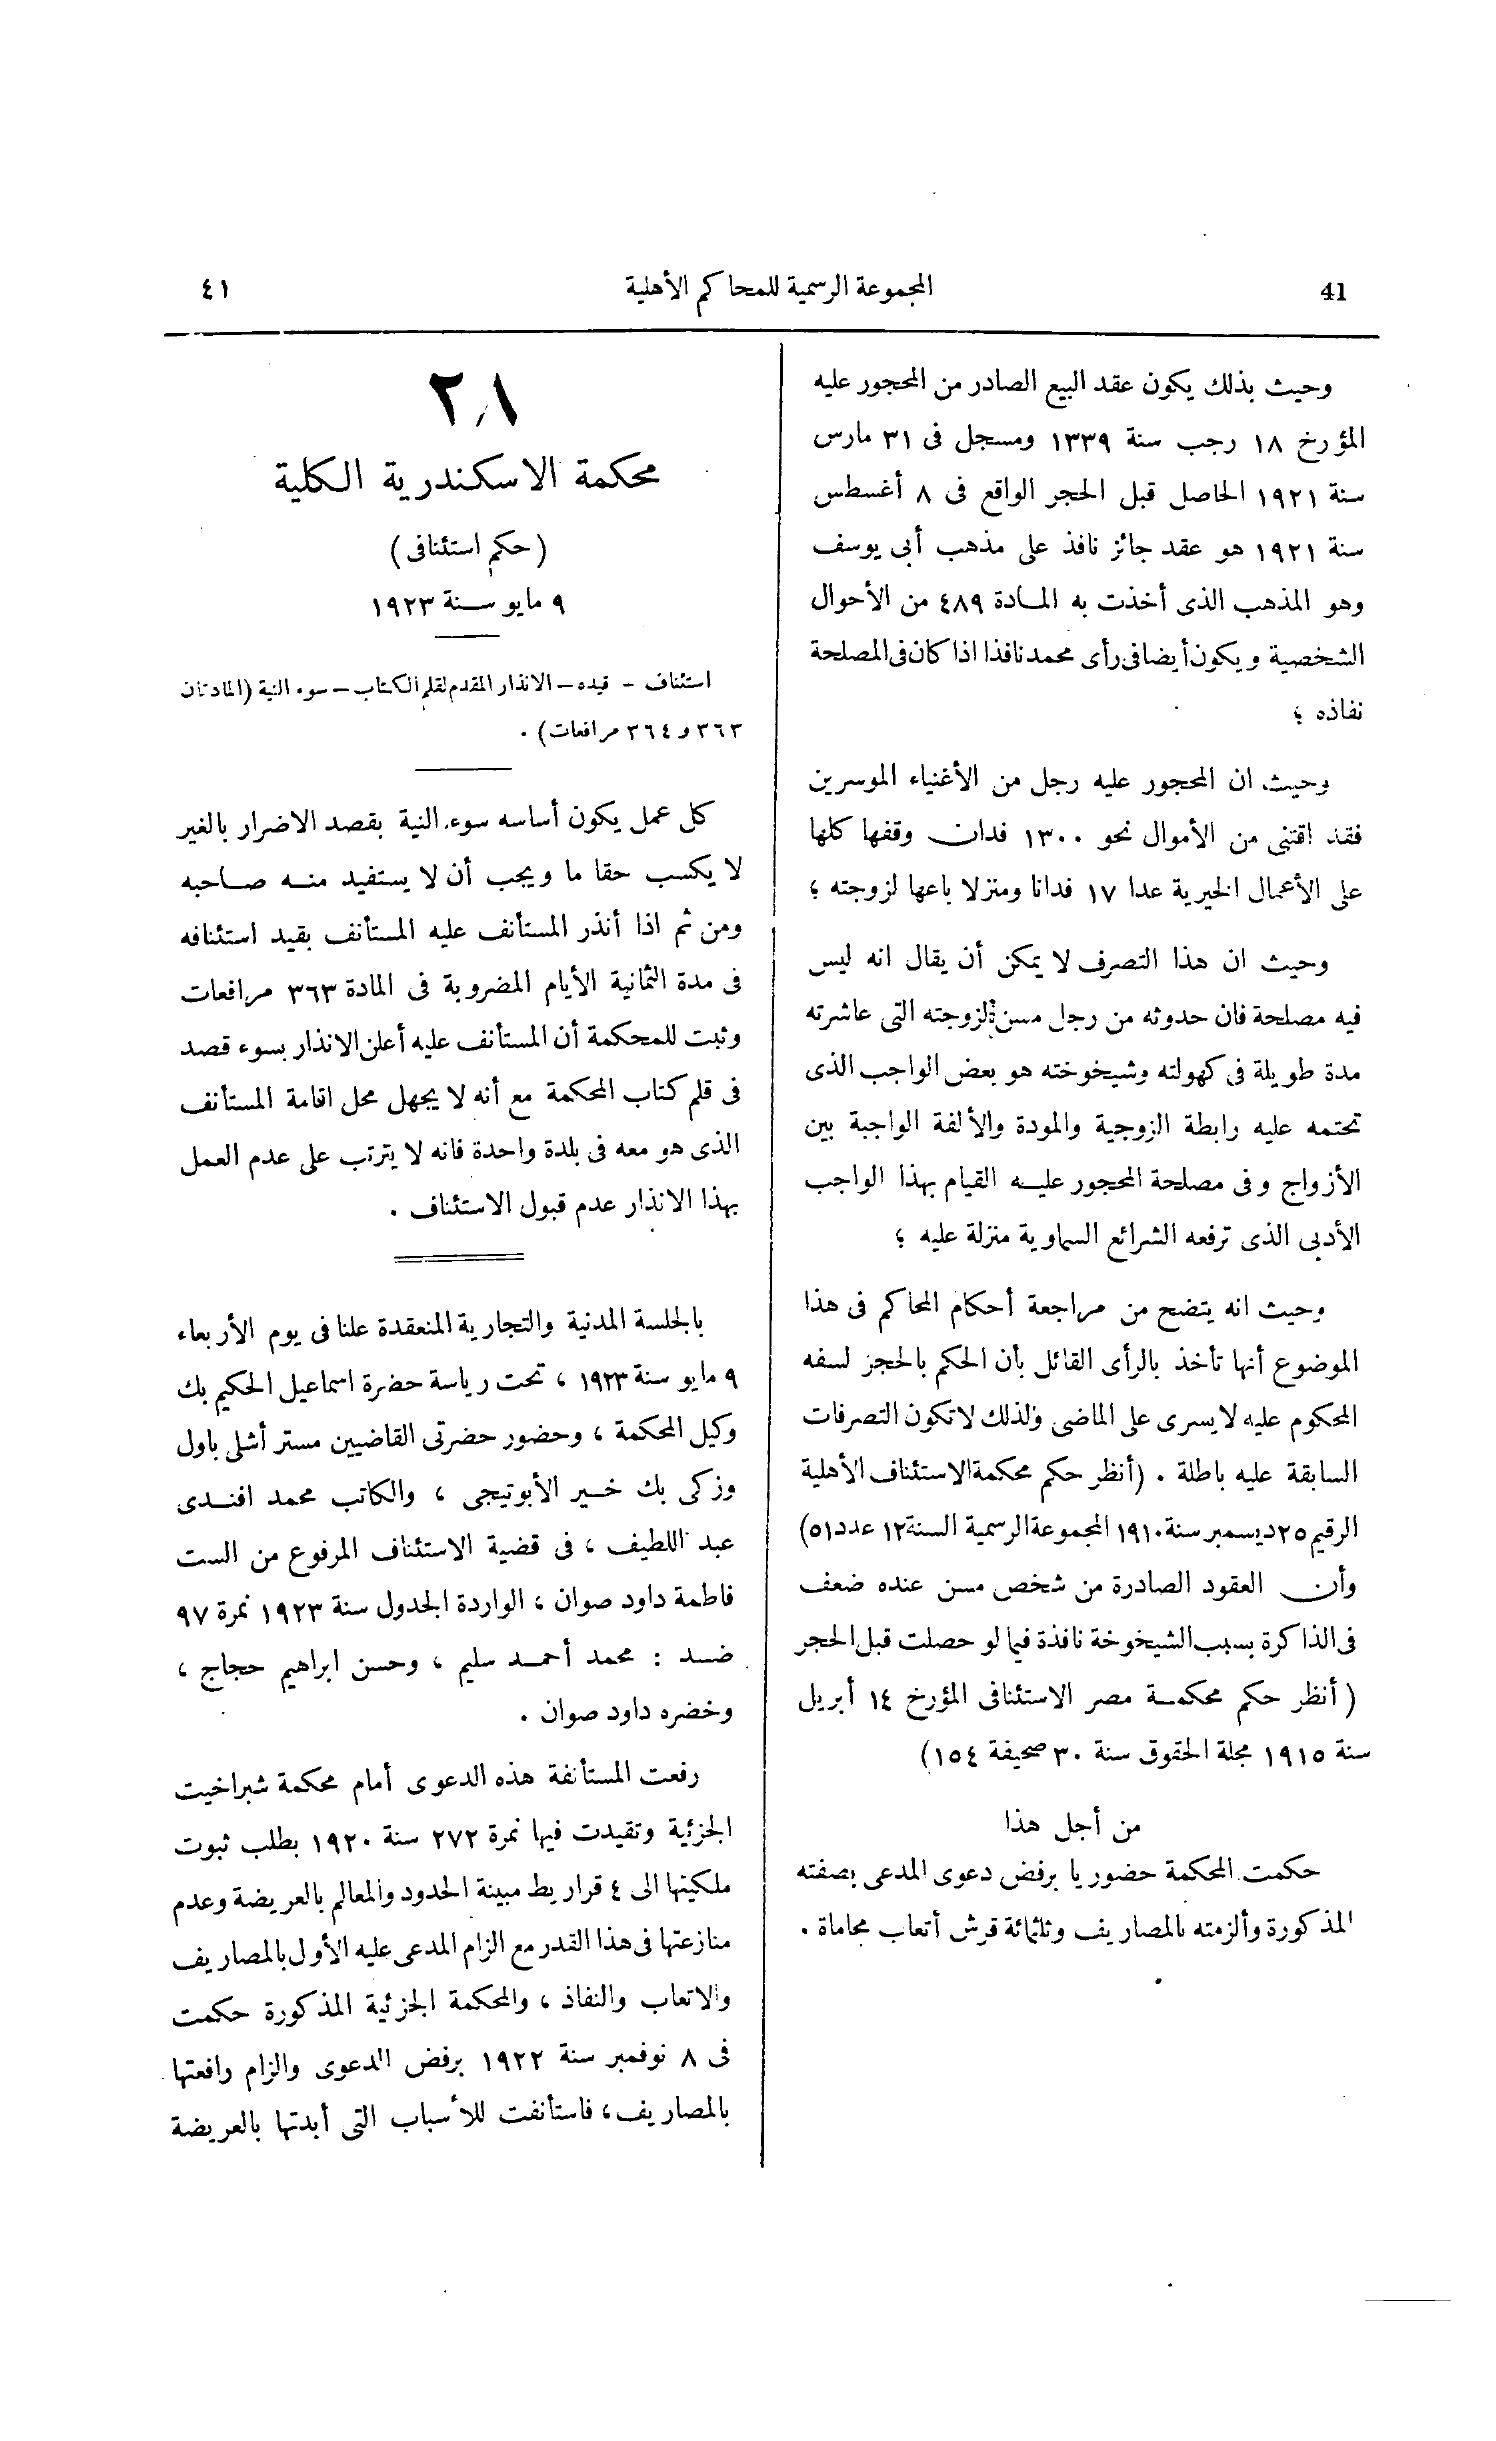 41
المجموعة الرسمية للمحاكم الأهلية
٤١
وحيث بذلك يكون عقد البيع الصادر من المحجور عليه
المؤرخ ١٨ رجب سنة ١٣٣٩ ومسجل فى ٣١ مارس
سنة ١٩٢١ الحاصل قبل الحجر الواقع فى ٨ أغسطس
سنة ١٩٢١ هو عقد جائز نافذ على مذهب أبى يوسف
وهو المذهب الذى أخذت به المادة ٤٨٩ من الأحوال
الشخصية ويكون أيضا فى رأى محمد نافذا اذا كان فى المصلحة
نفاذه ؛
وحيث ان المحجور عليه رجل من الأغنياء الموسرين
فقد اقتنى من الأموال نحو ١٣٠٠ فدان وقفها كلها
على الأعمال الخيرية عدا ١٧ فدانا ومنزلا باعها لزوجته ؛
وحيث ان هذا التصرف لا يمكن أن يقال انه ليس
فيه مصلحة فان حدوثه من رجل مسن لزوجته التى عاشرته
مدة طويلة فى كهولته وشيخوخته هو بعض الواجب الذى
تحتمه عليه رابطة الزوجية والمودة والألفة الواجبة بين
الأزواج وفى مصلحة المحجور عليه القيام بهذا الواجب
الأدبى الذى ترفعه الشرائع السماوية منزلة عليه ؛
وحيث انه يتضح من مراجعة أحكام المحاكم فى هذا
الموضوع أنها تأخذ بالرأى القائل بأن الحكم بالحجز لسفه
المحكوم عليه لا يسرى على الماضى ولذلك لا تكون التصرفات
السابقة عليه باطلة . (أنظر حكم محكمة الاستئناف الأهلية
الرقيم ٢٥ ديسمبر سنة ١٩١٠ المجموعة الرسمية السنة ١٢ عدد ٥١)
وأن العقود الصادرة من شخص مسن عنده ضعف
فى الذاكرة بسبب الشيخوخة نافذة فيما لو حصلت قبل الحجر
(أنظر حكم محكمة مصر الاستئنافى المؤرخ ١٤ أبريل
سنة ١٩١٥ مجلة الحقوق سنة ٣٠ صحيفة ١٥٤)
من أجل هذا
حكمت المحكمة حضوريا برفض دعوى المدعى بصفته
المذكورة وألزمته بالمصاريف وثلثمائة قرش أتعاب محاماة .
٢٨
محكمة الاسكندرية الكلية
(حكم استئنافى)
٩ مايو سنة ١٩٢٣
استئناف – قيده – الانذار المقدم لقلم الكتاب – سوء النية (المادتان
٣٦٣ و ٣٦٤ مرافعات) .
كل عمل يكون أساسه سوء النية بقصد الاضرار بالغير
لا يكسب حقا ما ويجب أن لا يستفيد منه صاحبه
ومن ثم اذا أنذر المستأنف عليه المستأنف بقيد استئنافه
فى مدة الثمانية الأيام المضروبة فى المادة ٣٦٣ مرافعات
وثبت للمحكمة أن المستأنف عليه أعلن الانذار بسوء قصد
فى قلم كتاب المحكمة مع أنه لا يجهل محل اقامة المستأنف
الذى هو معه فى بلدة واحدة فانه لا يترتب على عدم العمل
بهذا الانذار عدم قبول الاستئناف .
بالجلسة المدنية والتجارية المنعقدة علنا فى يوم الأربعاء
٩ مايو سنة ١٩٢٣ ، تحت رياسة حضرة اسماعيل الحكيم بك
وكيل المحكمة ، وحضور حضرتى القاضيين مستر أشلى باول
وزكى بك خير الأبوتيجى ، والكاتب محمد افندى
عبد اللطيف ، فى قضية الاستئناف المرفوع من الست
فاطمة داود صوان ، الواردة الجدول سنة ١٩٢٣ نمرة ٩٧
ضد : محمد أحمد سليم ، وحسن ابراهيم حجاج ،
وخضره داود صوان .
رفعت المستأنفة هذه الدعوى أمام محكمة شبراخيت
الجزئية وتقيدت فيها نمرة ٢٧٢ سنة ١٩٢٠ بطلب ثبوت
ملكيتها الى ٤ قراريط مبينة الحدود والمعالم بالعريضة وعدم
منازعتها فى هذا القدر مع الزام المدعى عليه الأول بالمصاريف
والاتعاب والنفاذ ، والمحكمة الجزئية المذكورة حكمت
فى ٨ نوفمبر سنة ١٩٢٢ برفض الدعوى والزام رافعتها
بالمصاريف، فاستأنفت للأسباب التى أبدتها بالعريضة